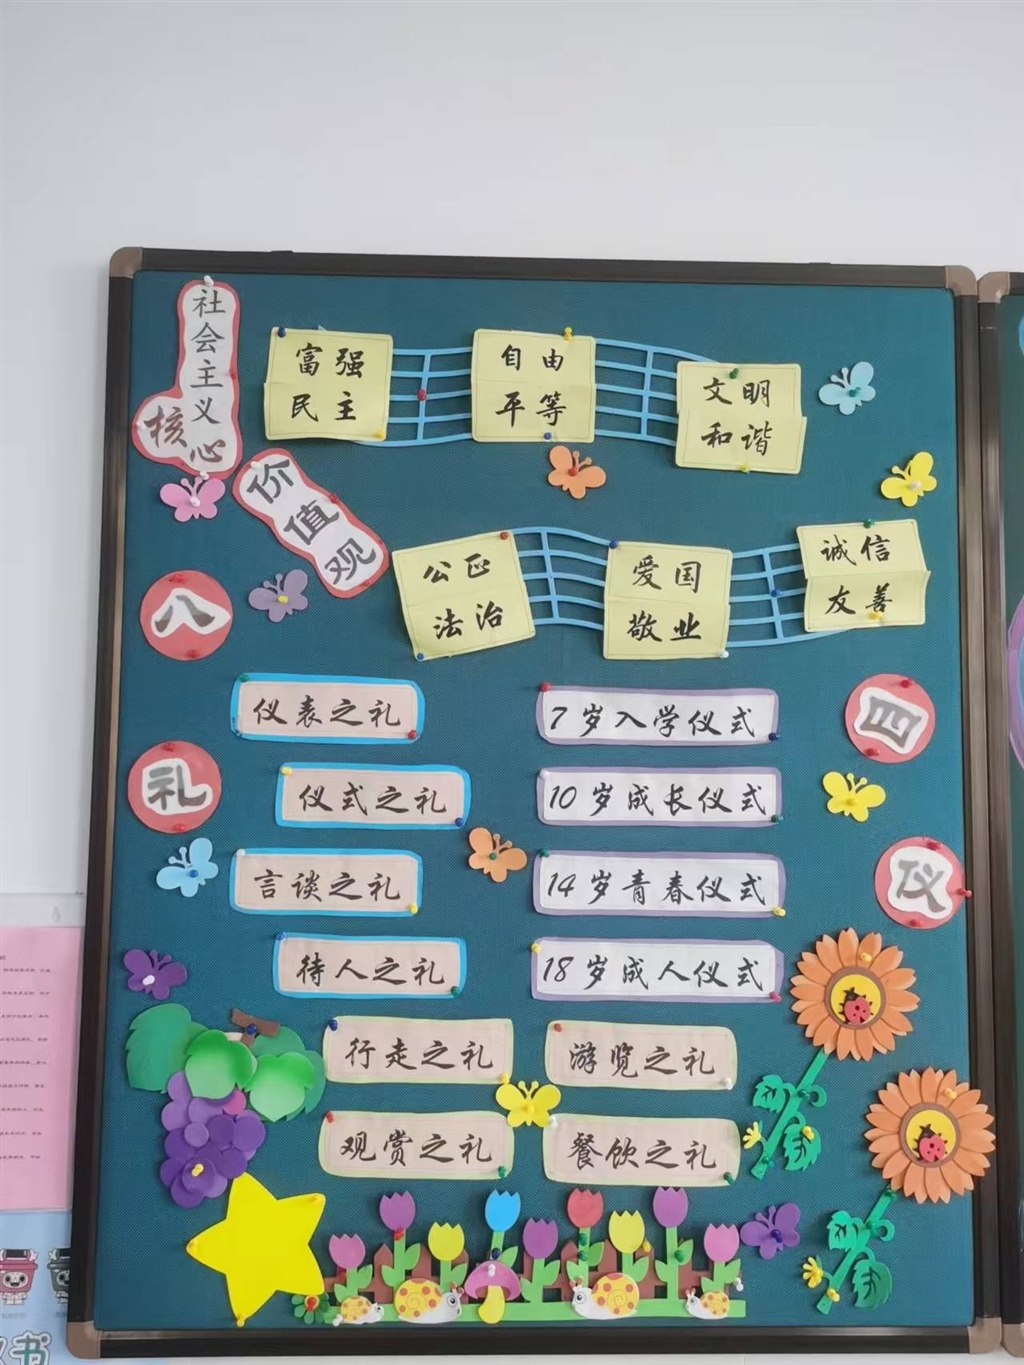 社会主义
核心
价值观
富强
民主
自由
平等
文明
和谐
公正
法治
爱国
敬业
诚信
友善
八
礼
仪表之礼
仪式之礼
言谈之礼
待人之礼
行走之礼
观赏之礼
游览之礼
餐饮之礼
四
仪
7岁入学仪式
10岁成长仪式
14岁青春仪式
18岁成人仪式
书